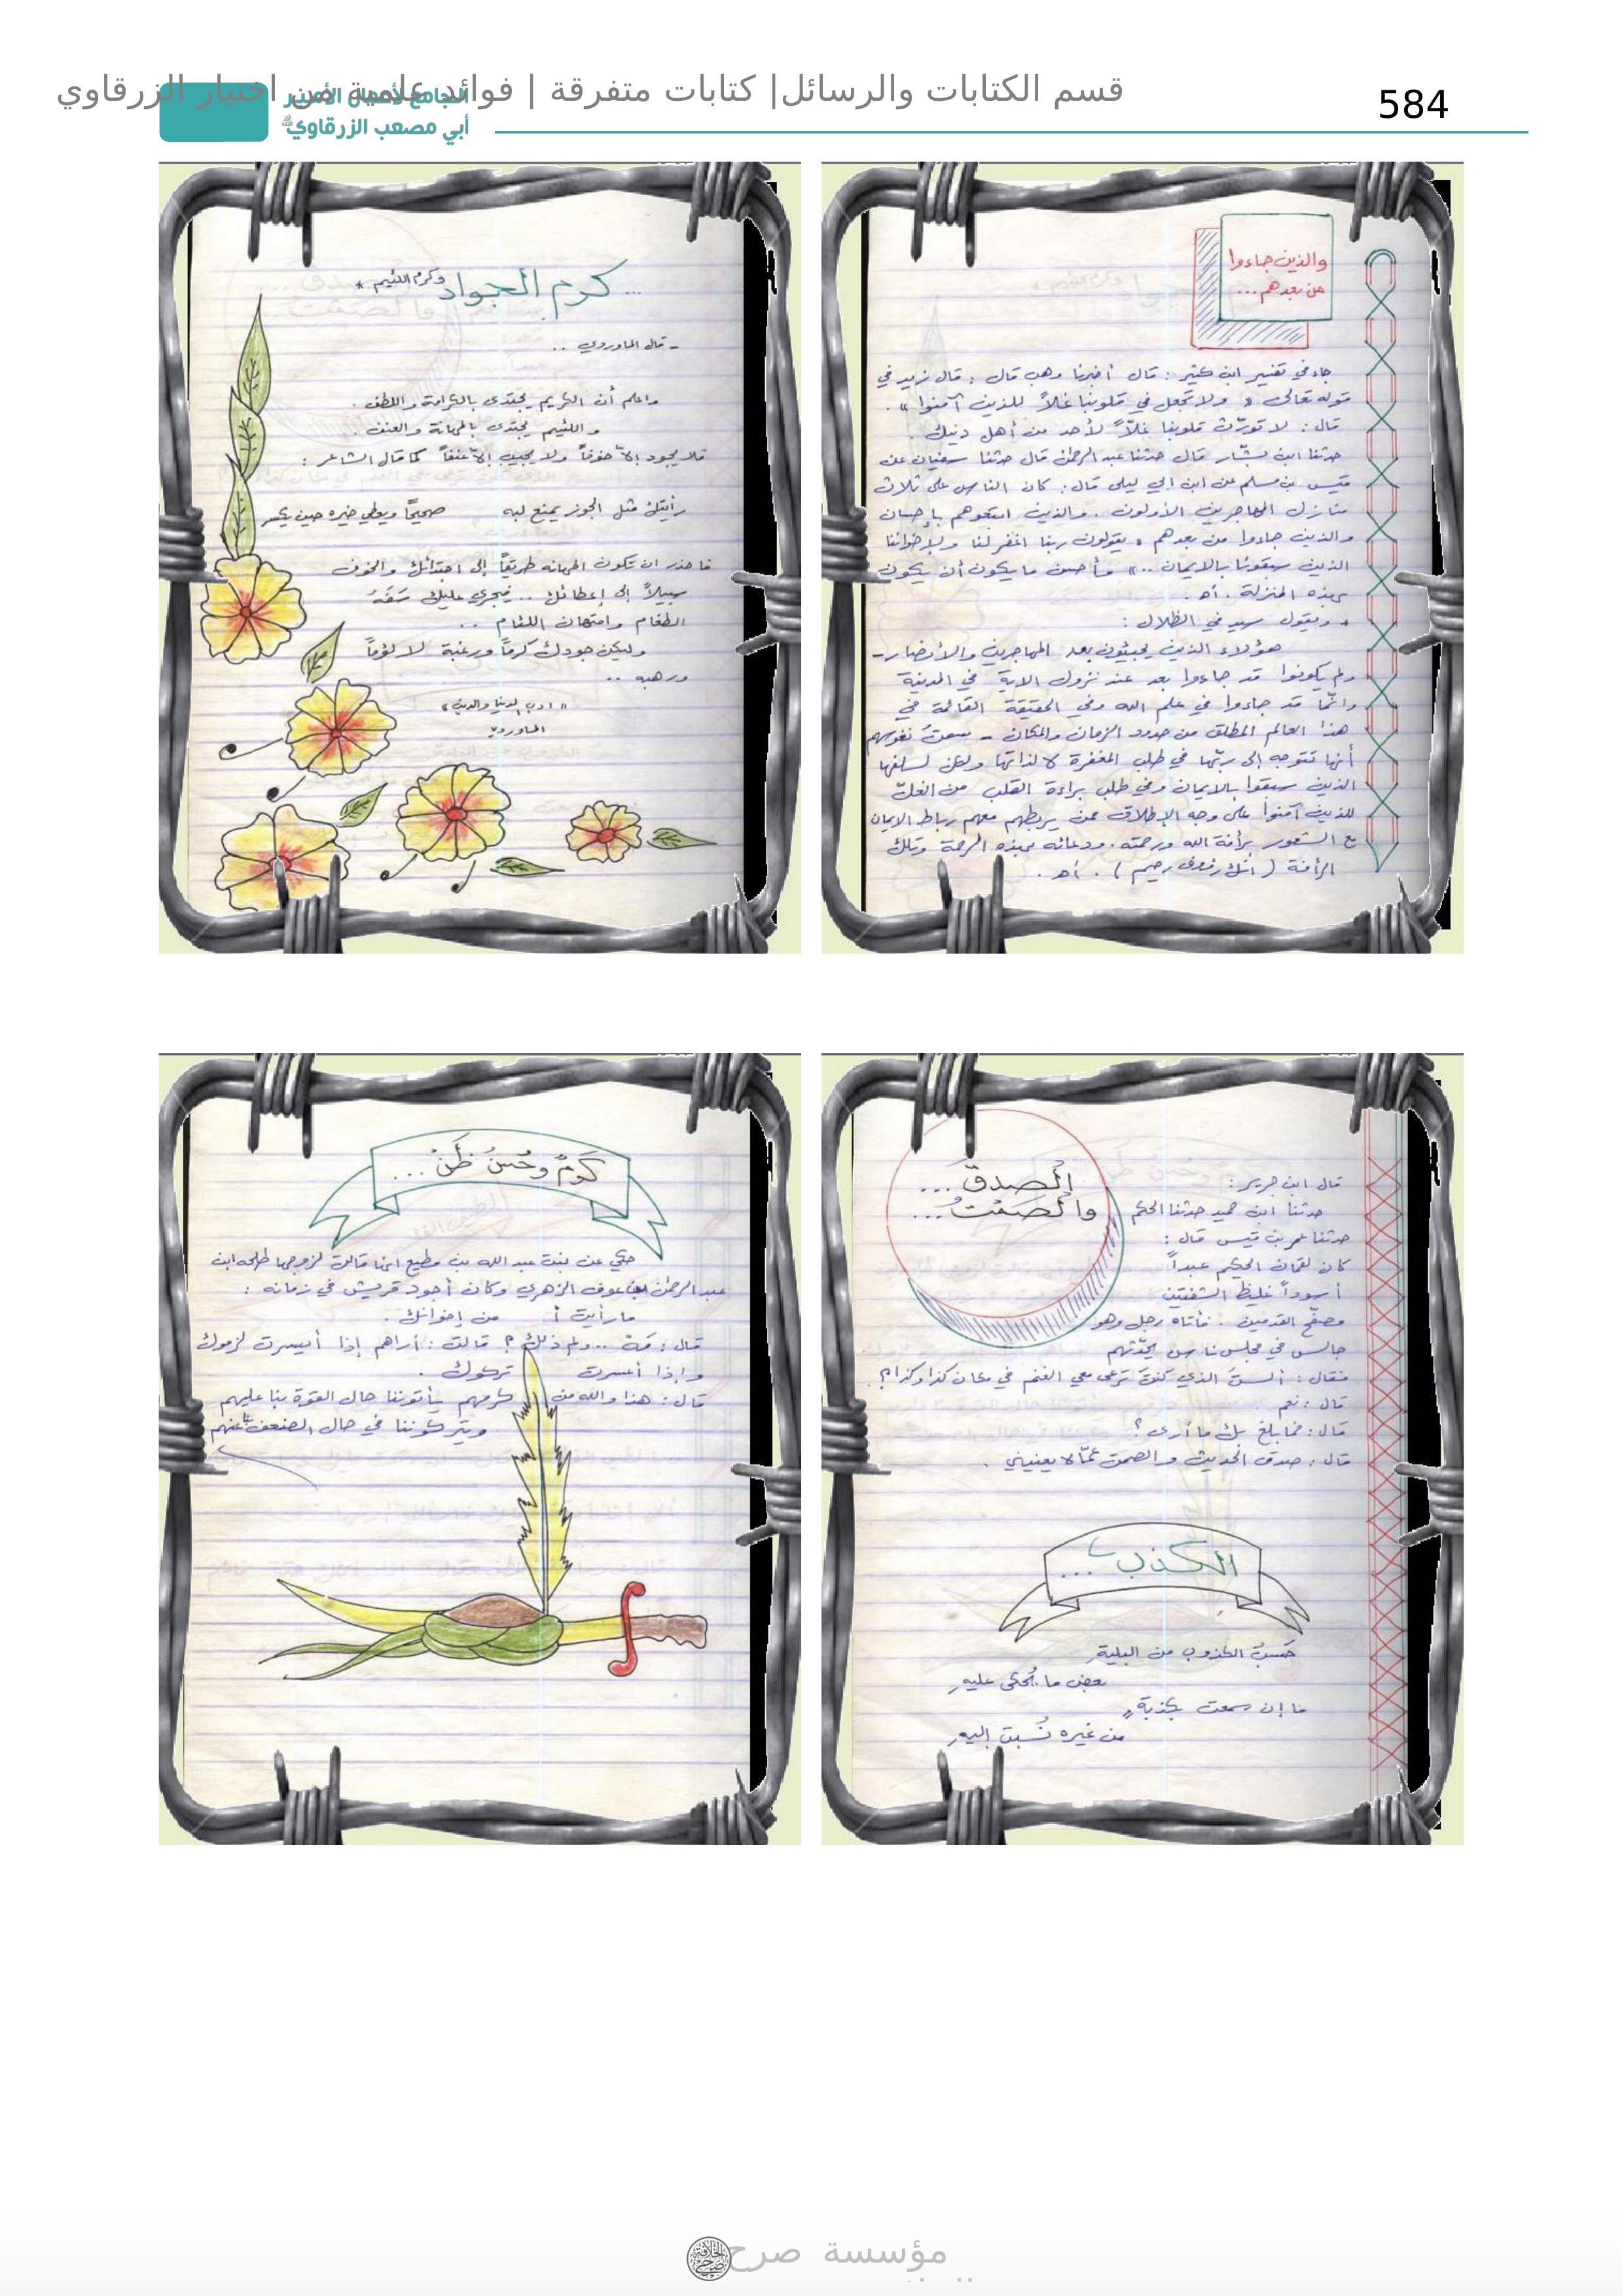 584
قسم الكتابات والرسائل| كتابات متفرقة | فوائد علمية من اختيار الزرقاوي
الجامع لأعمال الأمير
أبي مصعب الزرقاوي
والذين جاءوا
من بعدهم...
جاء في تفسير ابن كثير : قال أخبرنا وهب قال : قال زيد في
قوله تعالى « ولا تجعل في قلوبنا غلاً للذين آمنوا » .
قال : لا تورّث قلوبنا غلاًّ لأحد من أهل دينك .
حدثنا ابن بشّار قال حدثنا عبد الرحمن قال حدثنا سفيان عن
قيس بن مسلم عن ابن ابي ليلى قال : كان الناس على ثلاث
منازل المهاجرين الأولون . والذين اتبعوهم بإحسان
والذين جاءوا من بعدهم « يقولون ربنا اغفر لنا ولإخواننا
الذين سبقونا بالايمان .. » فأحسن ما يكون أن يكون
بهذه المنزلة . أهـ .
* ويقول سيد في الظلال :
هؤلاء الذين يجيئون بعد المهاجرين والأنصار -
ولم يكونوا قد جاءوا بعد عند نزول الاية في المدينة
وانّما قد جاءوا في علم الله وفي الحقيقة القائمة في
هذا العالم المطلق من حدود الزمان والمكان - سمت نفوسهم
أنها تتوجه إلى ربّها في طلب المغفرة لا لذاتها ولكن لسلفها
الذين سبقوا بالايمان وفي طلب براءة القلب من الغلّ
للذين آمنوا على وجه الإطلاق ممن يربطهم معهم رباط الايمان
مع الشعور برأفة الله ورحمته . ودعائه بهذه الرحمة وتلك
الرأفة ( انك رؤوف رحيم ) . أهـ .
... كرم الجواد وكرم اللئيم *
- قال الماوردي ..
واعلم أن الكريم يجتدى بالكرامة واللطف .
واللئيم يجتدى بالمهانة والعنف .
فلا يجود إلاّ خوفاً ولا يجيب إلاّ عنفاً كما قال الشاعر :
رأيتك مثل الجوز يمنع لبه صحيحًا ويعطي خيره حين يكسر
فاحذر ان تكون المهانه طريقاً إلى اجتدائك والخوف
سبيلاً إلى إعطائك .. فيجري عليك سَفَهُ
الطغام وامتهان اللئام ..
وليكن جودك كرماً ورغبة لا لؤماً
ورهبه ..
« ادب الدنيا والدين »
الماوردي
الصدقُ ...
والصمتُ ...
قال ابن جرير :
حدثنا ابن حميد حدثنا الحكم
حدثنا عمر بن قيس قال :
كان لقمان الحكيم عبداً
أسوداً غليظ الشفتين
مصفّح القدمين . فأتاه رجل وهو
جالس في مجلس ناس يحدّثهم
فقال : ألستَ الذي كنتَ ترعى معي الغنم في مكان كذا وكذا ؟ .
قال : نعم .
قال : فما بلغ بك ما أرى ؟
قال : صدق الحديث والصمت عمّا لا يعنيني .
الكذب ...
حَسبُ الكذوب من البليةِ
بعض ما يُحكى عليهِ
ما إن سمعت بكذبةٍ
من غيره نُسبت إليهِ
كرمٌ وحُسنُ ظنّ ...
حكي عن بنت عبد الله بن مطيع انها قالت لزوجها طلحه ابن
عبد الرحمن بن عوف الزهري وكان أجود قريش في زمانه :
ما رأيت أ من إخوانك .
قال : مَهْ .. ولم ذلك ؟ قالت : أراهم إذا أيسرت لزموك
وإذا أعسرت تركوك .
قال : هذا والله من كرمهم يأتوننا حال القوة بنا عليهم
ويتركوننا في حال الضعف بنا عنهم
مؤسسة صرح